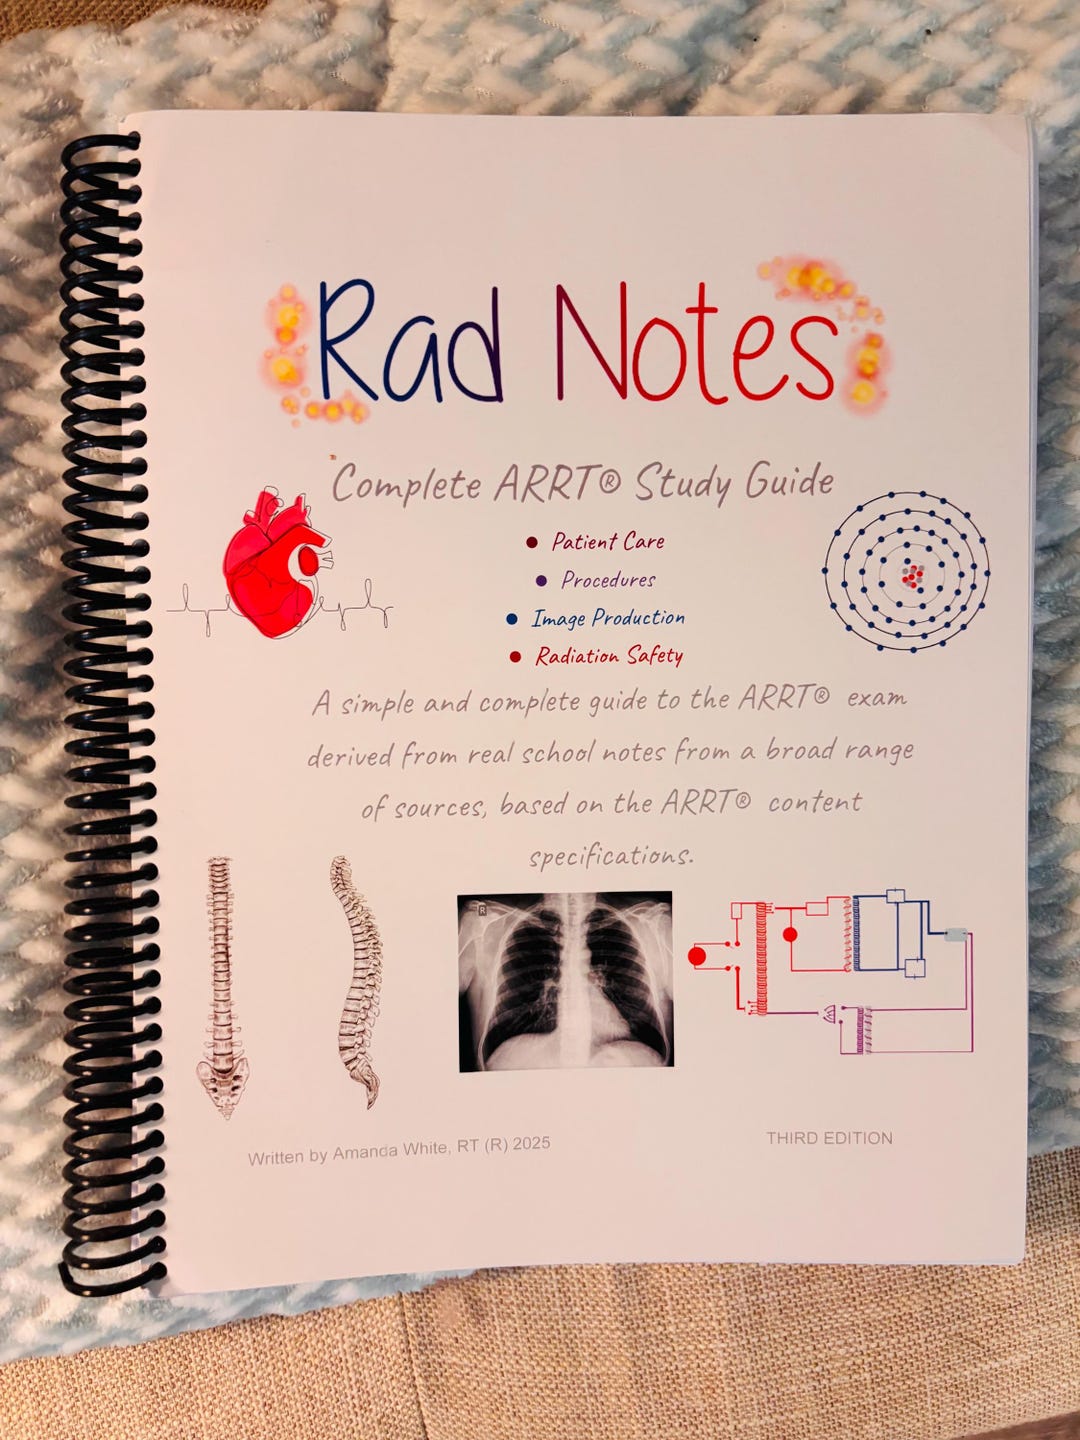 Rad Notes
Complete ARRT® Study Guide
• Patient Care
• Procedures
• Image Production
• Radiation Safety
A simple and complete guide to the ARRT® exam
derived from real school notes from a broad range
of sources, based on the ARRT® content
specifications.
R
Written by Amanda White, RT (R) 2025
THIRD EDITION